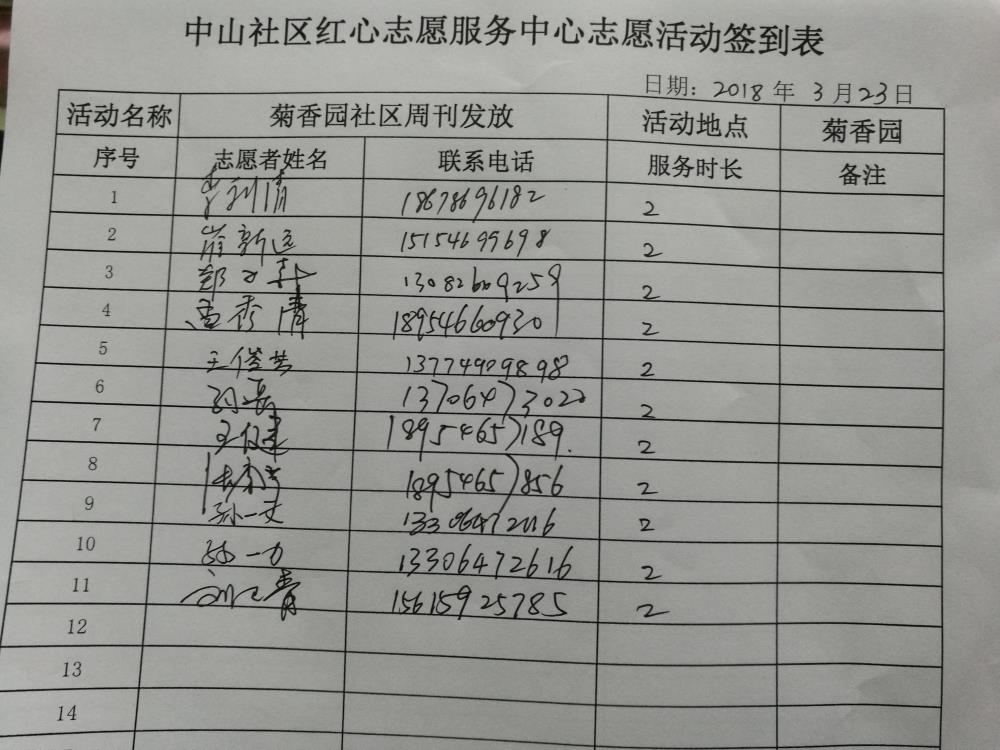 中山社区红心志愿服务中心志愿活动签到表
日期：2018年3月23日
活动名称 菊香园社区周刊发放 活动地点 菊香园
序号 志愿者姓名 联系电话 服务时长 备注
1 18678696182 2
2 崔新远 15154699698 2
3 13082609259 2
4 孟秀清 18954660930 2
5 王俊芸 13774909898 2
6 13706473022 2
7 王俊建 18954657189. 2
8 18954657856 2
9 孙一丈 2
10 13306472616 2
11 15615925785 2
12
13
14